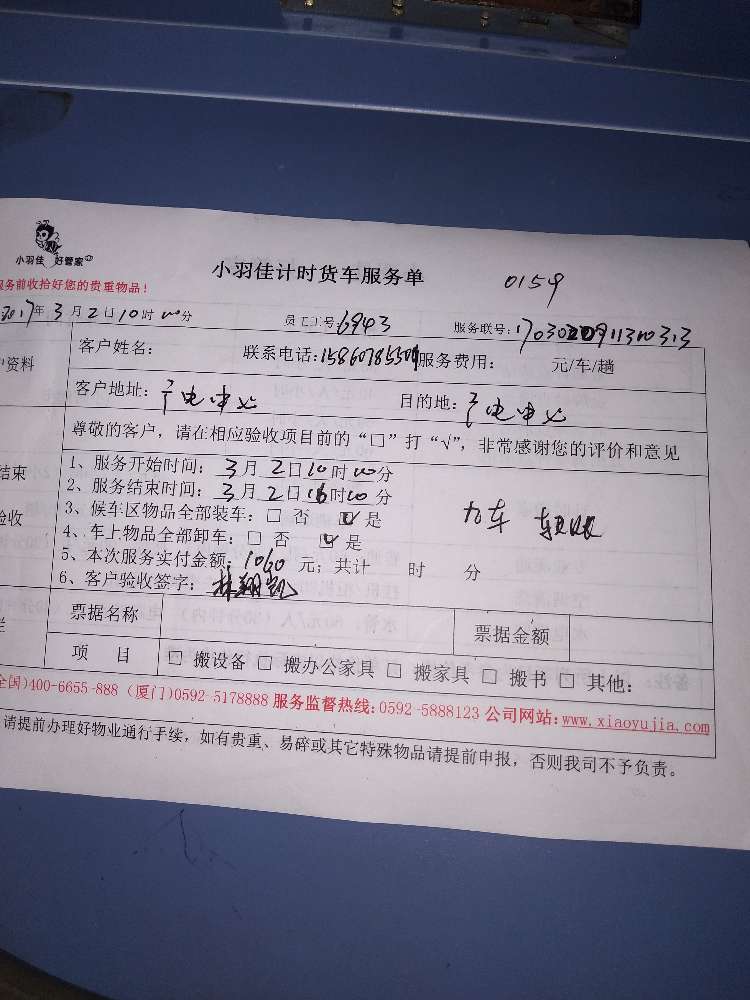 小羽佳 好管家
小羽佳计时货车服务单 0159
服务前收拾好您的贵重物品！
2017年3月2日10时00分 员工工号6943 服务联号：
户资料 客户姓名： 联系电话： 服务费用： 元/车/趟
客户地址：广电中心 目的地：广电中心
尊敬的客户，请在相应验收项目前的“□”打“√”，非常感谢您的评价和意见
结束
验收
1、服务开始时间：3月2日10时00分
2、服务结束时间：3月2日16时00分
3、候车区物品全部装车：□ 否 ☑ 是 九车
4、车上物品全部卸车：□ 否 ☑ 是
5、本次服务实付金额：1060元；共计 时 分
6、客户验收签字：林翔凯
票据名称 票据金额
项 目 □ 搬设备 □ 搬办公家具 □ 搬家具 □ 搬书 □ 其他：
全国)400-6655-888 (厦门)0592-5178888 服务监督热线：0592-5888123 公司网站：www.xiaoyujia.com
请提前办理好物业通行手续，如有贵重、易碎或其它特殊物品请提前申报，否则我司不予负责。